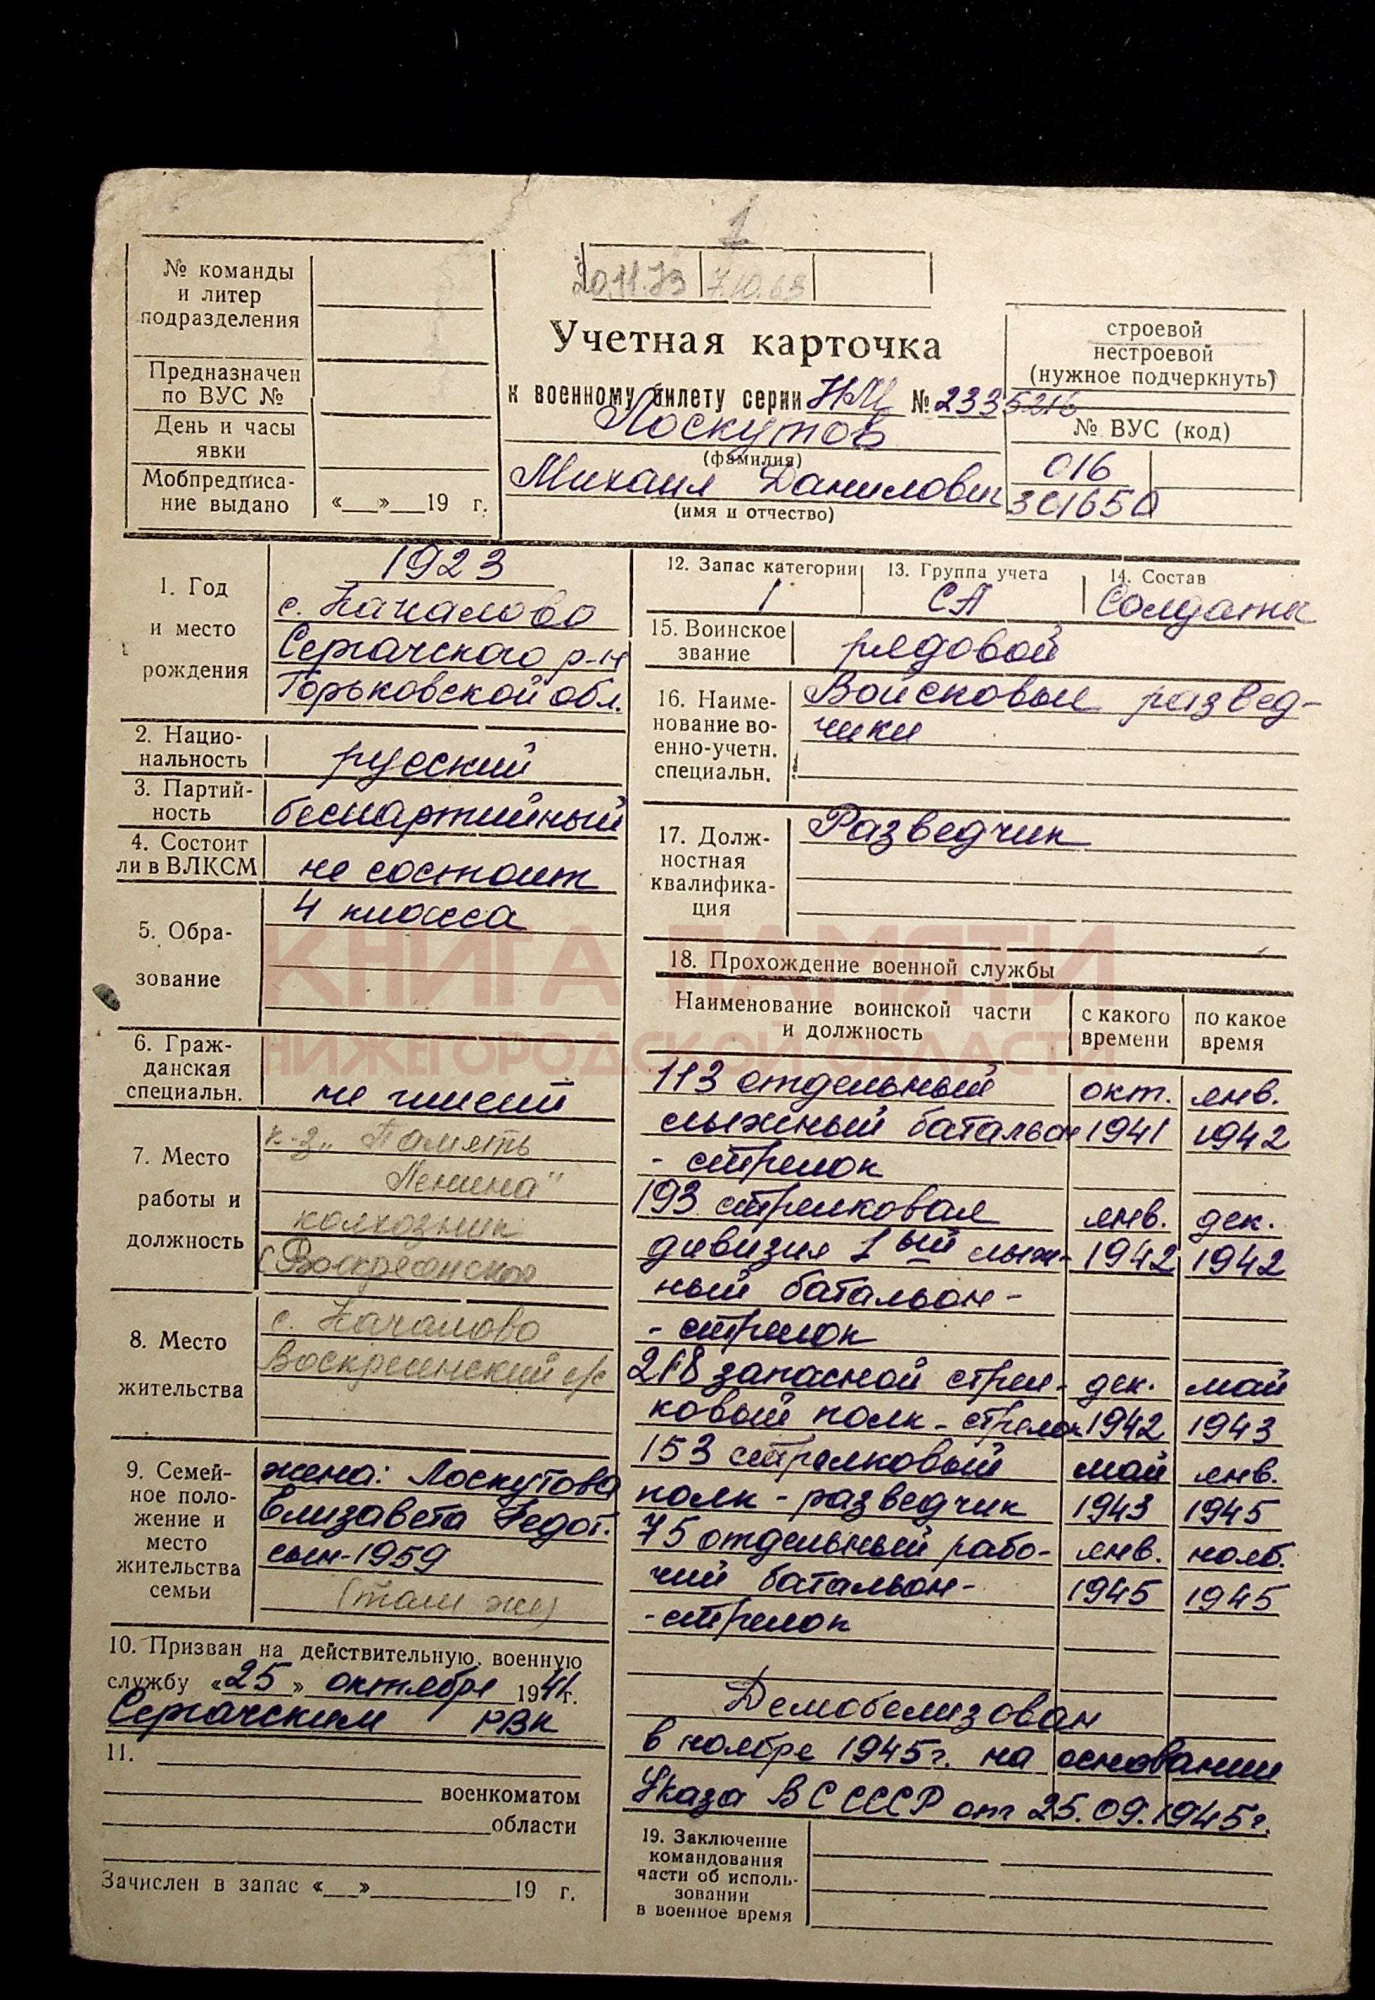 1
20.11.73 7.10.63
№ команды
и литер
подразделения
Предназначен
по ВУС №
День и часы
явки
Мобпредписа-
ние выдано «__»__19 г.
Учетная карточка
к военному билету серии НМ № 2335216
Лоскутов
(фамилия)
Михаил Данилович
(имя и отчество)
строевой
нестроевой
(нужное подчеркнуть)
№ ВУС (код)
016
301650
1. Год
и место
рождения
1923
с. Качалово
Сергачского р-н
Горьковской обл.
2. Нацио-
нальность
русский
3. Партий-
ность
беспартийный
4. Состоит
ли в ВЛКСМ
не состоит
5. Обра-
зование
4 класса
6. Граж-
данская
специальн.
не имеет
7. Место
работы и
должность
к-з „Память
Ленина"
колхозник
8. Место
жительства
с. Качалово
Воскресенский с/с
9. Семей-
ное поло-
жение и
место
жительства
семьи
жена: Лоскутова
Елизавета Федот.
сын-1959
(там же)
10. Призван на действительную военную
службу «25» октября 1941 г.
Сергачским РВК
11.
военкоматом
области
Зачислен в запас «__»________19 г.
12. Запас категории
1
13. Группа учета
СА
14. Состав
Солдаты
15. Воинское
звание
рядовой
16. Наиме-
нование во-
енно-учетн.
специальн.
Войсковые развед-
чики
17. Долж-
ностная
квалифика-
ция
Разведчик
18. Прохождение военной службы
Наименование воинской части
и должность
с какого
времени
по какое
время
113 отдельный окт. янв.
лыжный батальон 1941 1942
- стрелок
193 стрелковая янв. дек.
дивизия 1ый лыж- 1942 1942
ный батальон-
- стрелок
218 запасной стрел- дек. май
ковый полк - стрелок 1942 1943
153 стрелковый май янв.
полк - разведчик 1943 1945
75 отдельный рабо- янв. нояб.
чий батальон- 1945 1945
-стрелок
Демобелизован
в ноябре 1945г. на основании
Указа ВС СССР от 25.09.1945г.
19. Заключение
командования
части об исполь-
зовании
в военное время
КНИГА ПАМЯТИ
НИЖЕГОРОДСКОЙ ОБЛАСТИ